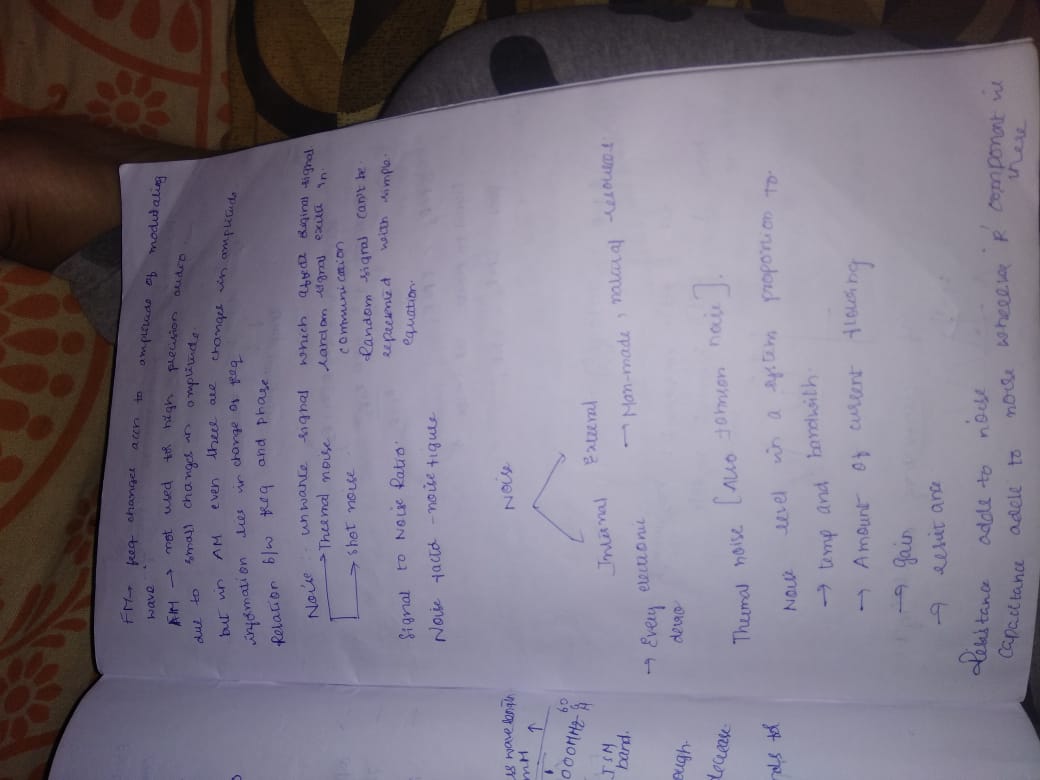 FM → freq changes accn to amplitude of modutaling
wave
AM → not used for high precision audio
due to small changes in amplitude.
but in AM even there are changes in amplitude
information lies in change of freq
Relation b/w freq and phase
Noise unwante signal which affects original signal
→ Thermal noise
→ shot noise
random signal exists in
communication
Random signal can't be
represented with simple
equation.
Signal to Noise Ratio.
Noise factor - noise figure
Noise
Internal External
→ Man-made, natural resources
→ Every electronic
Thermal noise [Also Johnson noise].
Noise level in a system proportion to
→ temp and bandwith
→ Amount of current flowing
→ gain
→ resistance
Resistance adds to noise
Capacitance adds to noise wherever 'R' component is
there
wavelength
↑
000MHz - 60
ISM
band.
ough
decrease